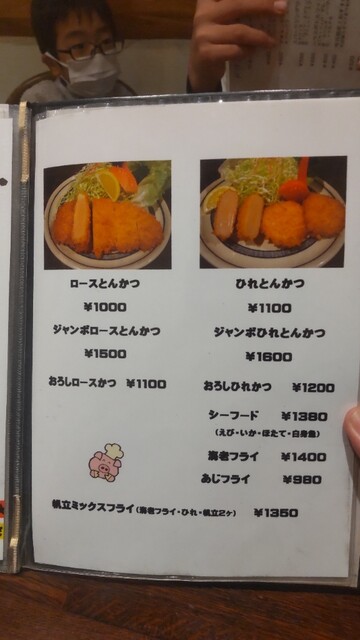 ロースとんかつ
¥1000
ジャンボロースとんかつ
¥1500
おろしロースかつ ¥1100
ひれとんかつ
¥1100
ジャンボひれとんかつ
¥1600
おろしひれかつ ¥1200
シーフード ¥1380
(えび・いか・ほたて・白身魚)
海老フライ ¥1400
あじフライ ¥980
帆立ミックスフライ(海老フライ・ひれ・帆立2ヶ) ¥1350